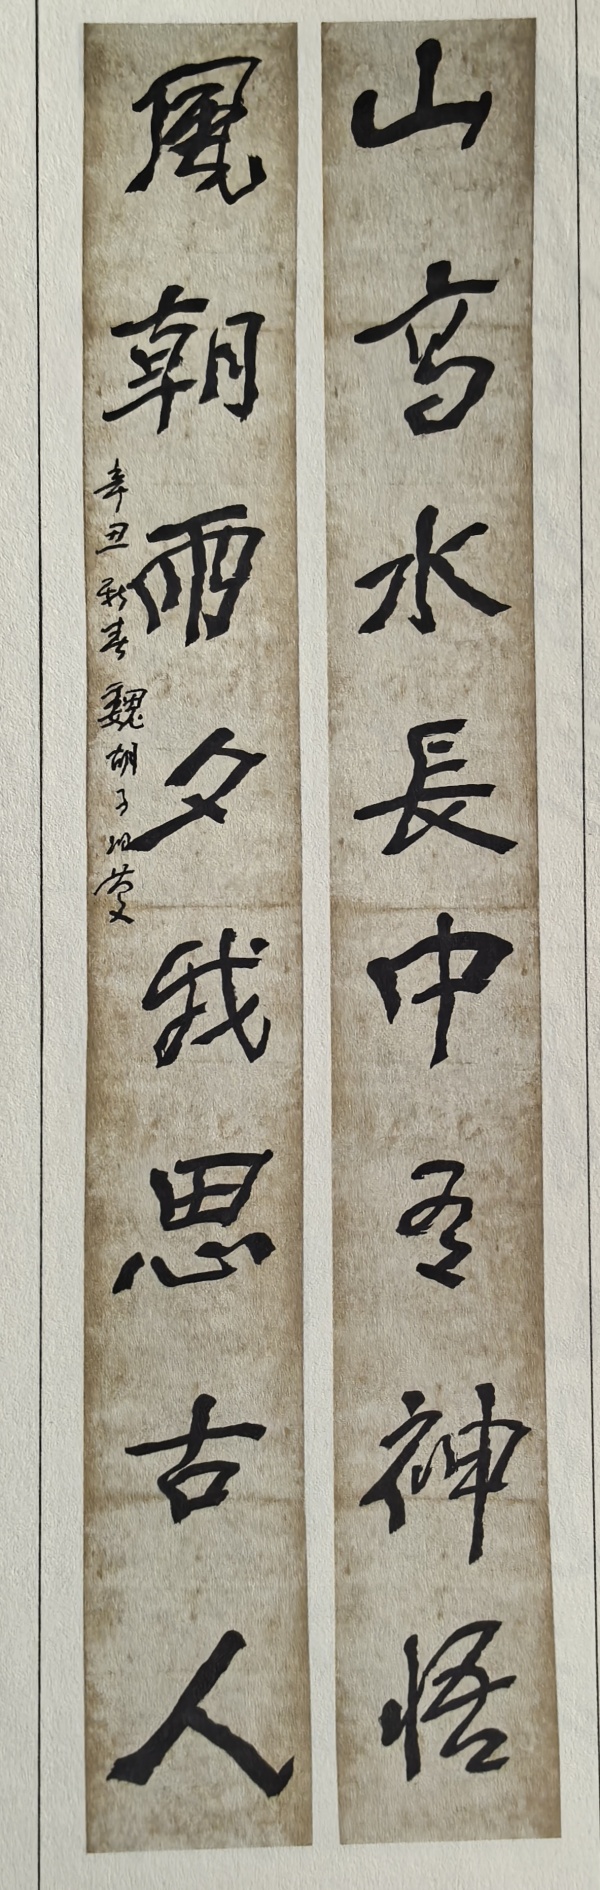 山高水長中有神悟
風朝雨夕我思古人
辛丑新春魏胡子